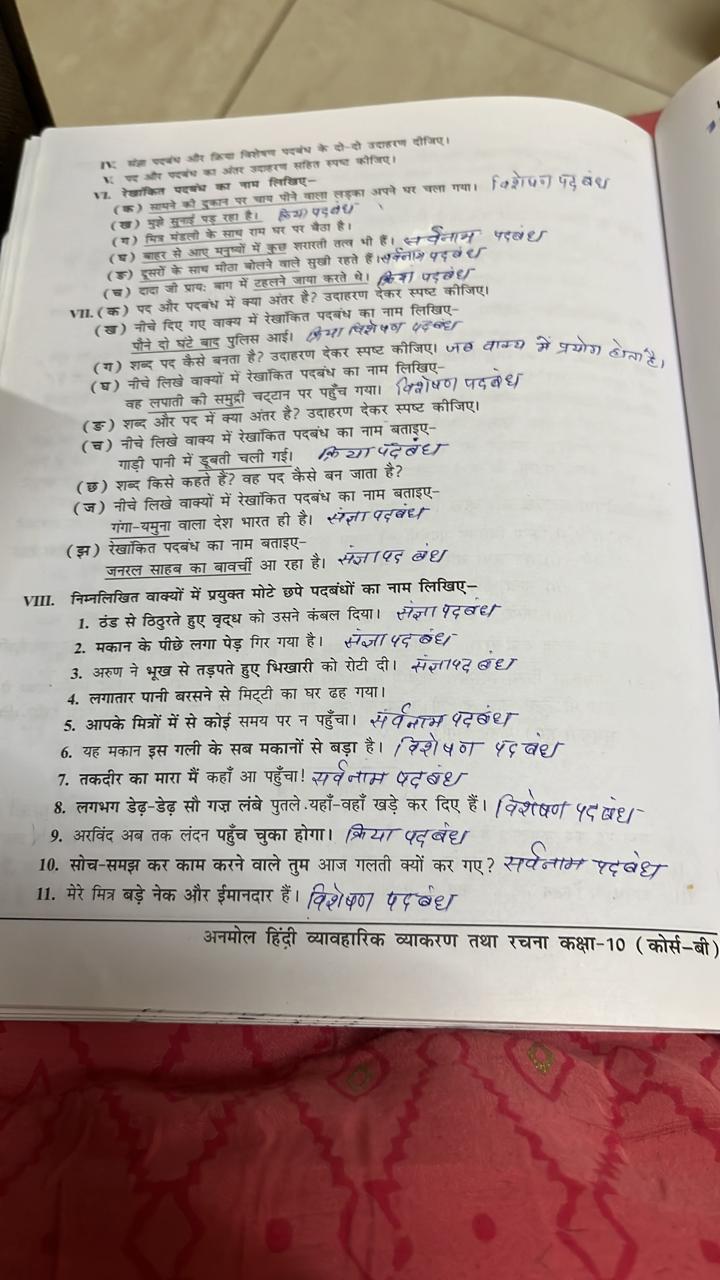 IV. संज्ञा पदबंध और क्रिया विशेषण पदबंध के दो-दो उदाहरण दीजिए।
V. पद और पदबंध का अंतर उदाहरण सहित स्पष्ट कीजिए।
VI. रेखांकित पदबंध का नाम लिखिए–
(क) सामने की दुकान पर चाय पीने वाला लड़का अपने घर चला गया। विशेषण पदबंध
(ख) मुझे सुनाई पड़ रहा है। क्रिया पदबंध
(ग) मित्र मंडली के साथ राम घर पर बैठा है।
(घ) बाहर से आए मनुष्यों में कुछ शरारती तत्व भी हैं। सर्वनाम पदबंध
(ङ) दूसरों के साथ मीठा बोलने वाले सुखी रहते हैं। सर्वनाम पदबंध
(च) दादा जी प्रायः बाग में टहलने जाया करते थे। क्रिया पदबंध
VII. (क) पद और पदबंध में क्या अंतर है? उदाहरण देकर स्पष्ट कीजिए।
(ख) नीचे दिए गए वाक्य में रेखांकित पदबंध का नाम लिखिए–
पौने दो घंटे बाद पुलिस आई। क्रिया विशेषण पदबंध
(ग) शब्द पद कैसे बनता है? उदाहरण देकर स्पष्ट कीजिए। जब वाक्य में प्रयोग होता है।
(घ) नीचे लिखे वाक्यों में रेखांकित पदबंध का नाम लिखिए–
वह लपाती की समुद्री चट्टान पर पहुँच गया। विशेषण पदबंध
(ङ) शब्द और पद में क्या अंतर है? उदाहरण देकर स्पष्ट कीजिए।
(च) नीचे लिखे वाक्य में रेखांकित पदबंध का नाम बताइए–
गाड़ी पानी में डूबती चली गई। क्रिया पदबंध
(छ) शब्द किसे कहते हैं? वह पद कैसे बन जाता है?
(ज) नीचे लिखे वाक्यों में रेखांकित पदबंध का नाम बताइए–
गंगा-यमुना वाला देश भारत ही है। संज्ञा पदबंध
(झ) रेखांकित पदबंध का नाम बताइए–
जनरल साहब का बावर्ची आ रहा है। संज्ञा पद बंध
VIII. निम्नलिखित वाक्यों में प्रयुक्त मोटे छपे पदबंधों का नाम लिखिए–
1. ठंड से ठिठुरते हुए वृद्ध को उसने कंबल दिया। संज्ञा पदबंध
2. मकान के पीछे लगा पेड़ गिर गया है। संज्ञा पदबंध
3. अरुण ने भूख से तड़पते हुए भिखारी को रोटी दी। संज्ञा पद बंध
4. लगातार पानी बरसने से मिट्टी का घर ढह गया।
5. आपके मित्रों में से कोई समय पर न पहुँचा। सर्वनाम पदबंध
6. यह मकान इस गली के सब मकानों से बड़ा है। विशेषण पदबंध
7. तकदीर का मारा मैं कहाँ आ पहुँचा! सर्वनाम पदबंध
8. लगभग डेढ़-डेढ़ सौ गज़ लंबे पुतले यहाँ-वहाँ खड़े कर दिए हैं। विशेषण पदबंध
9. अरविंद अब तक लंदन पहुँच चुका होगा। क्रिया पदबंध
10. सोच-समझ कर काम करने वाले तुम आज गलती क्यों कर गए? सर्वनाम पदबंध
11. मेरे मित्र बड़े नेक और ईमानदार हैं। विशेषण पदबंध
अनमोल हिंदी व्यावहारिक व्याकरण तथा रचना कक्षा-10 (कोर्स-बी)